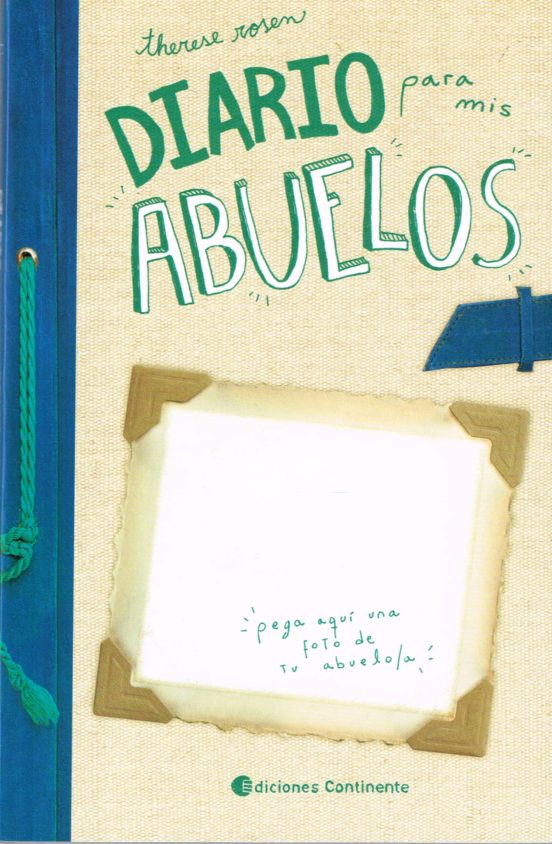 therese rosen
DIARIO para
mis
ABUELOS
pega aquí una
foto de
tu abuelo/a
Ediciones Continente